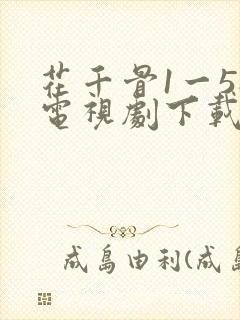 花千骨1一5
電視劇下載
成島由利(成島